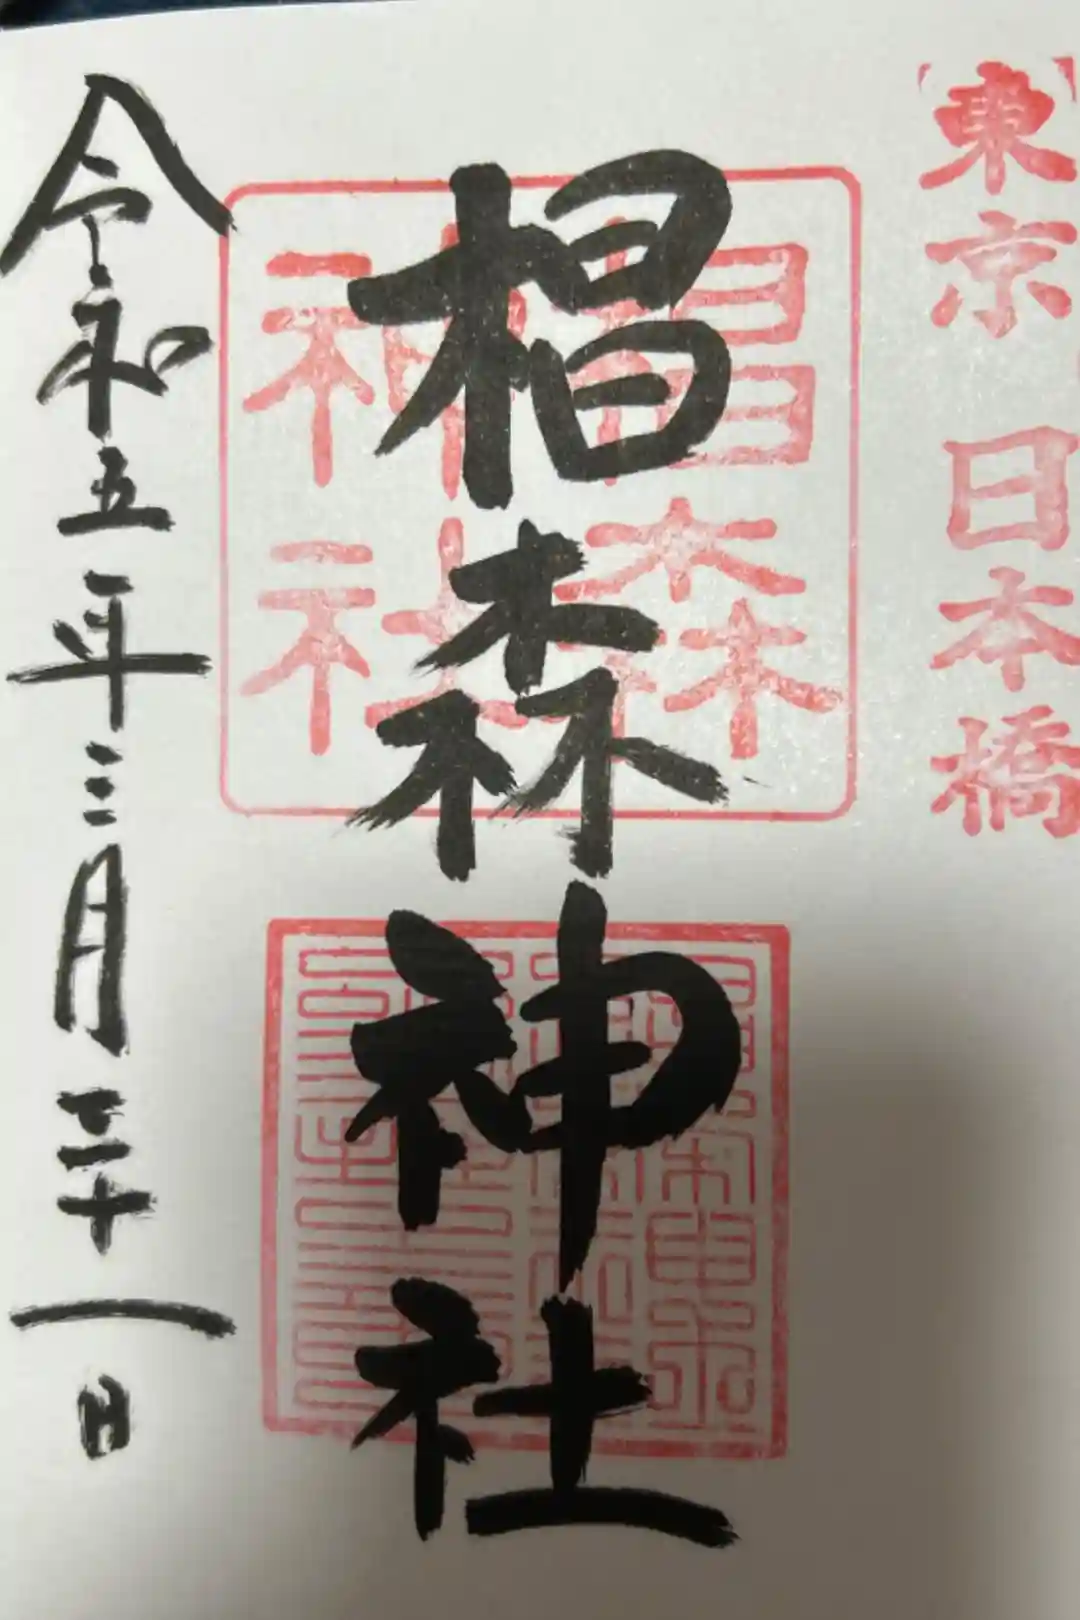 東京 日本橋
椙森神社
椙森
神社
令和五年三月三十一日